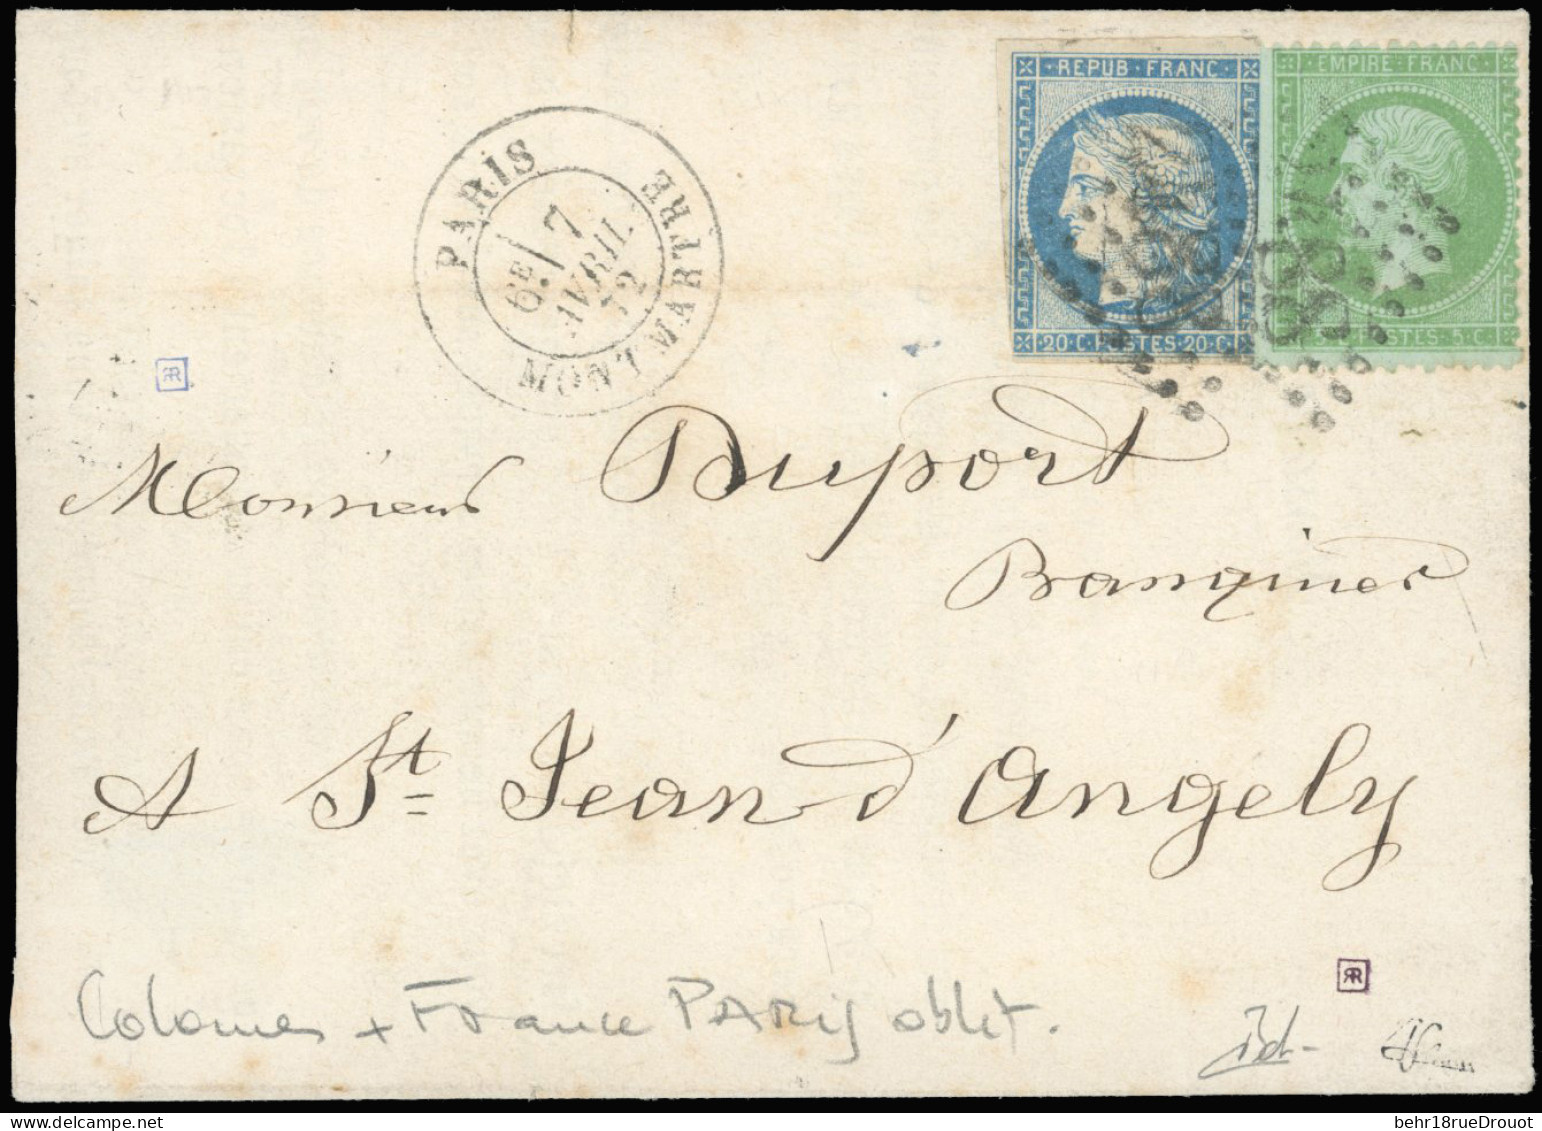 REPUB·FRANC
20·C·POSTES·20·C
EMPIRE·FRANC
POSTES·5·C
PARIS MONTMARTRE
6E
7
AVRIL
72
Monsieur Duport
Banquier
A St Jean d'Angely
R
Colonies + France PARis oblit.
behr18rueDrouot